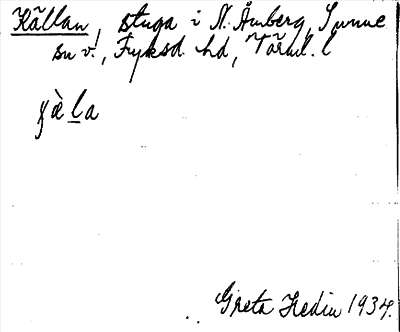 Källan, stuga i N. Åmberg, Sunne
sn v., Fryksd. hd, Värml. l
Greta Hedin 1934.